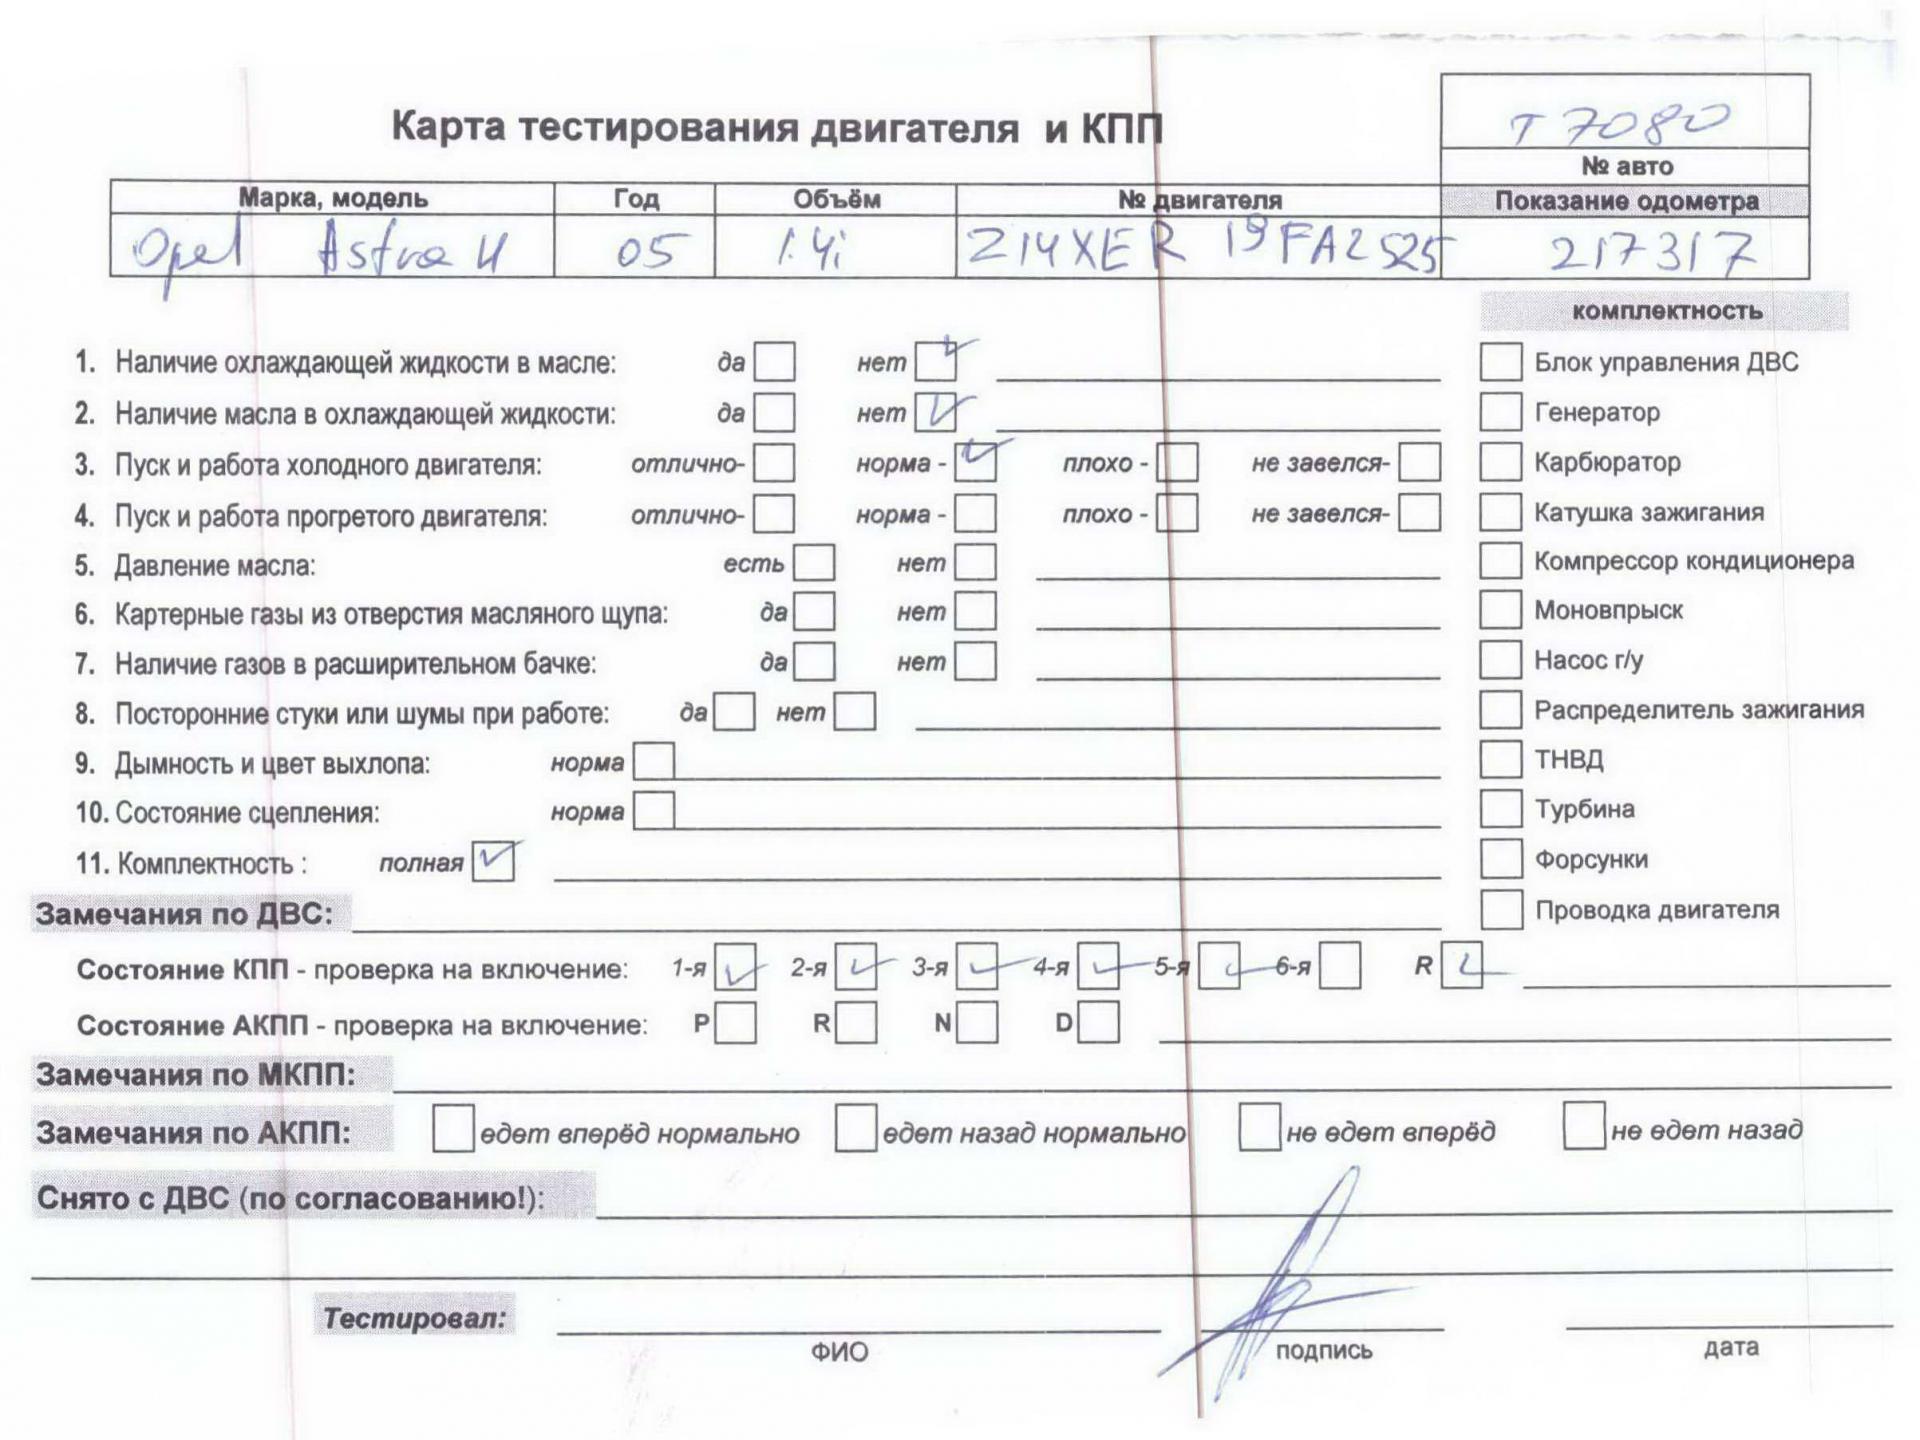 Карта тестирования двигателя и КПП
T 7080
№ авто
Марка, модель Год Объём № двигателя Показание одометра
Opel Astra H 05 1.4i Z14XER 19FA2525 217317
комплектность
1. Наличие охлаждающей жидкости в масле: да нет
Блок управления ДВС
2. Наличие масла в охлаждающей жидкости: да нет
Генератор
3. Пуск и работа холодного двигателя: отлично- норма - плохо - не завелся-
Карбюратор
4. Пуск и работа прогретого двигателя: отлично- норма - плохо - не завелся-
Катушка зажигания
5. Давление масла: есть нет
Компрессор кондиционера
6. Картерные газы из отверстия масляного щупа: да нет
Моновпрыск
7. Наличие газов в расширительном бачке: да нет
Насос г/у
8. Посторонние стуки или шумы при работе: да нет
Распределитель зажигания
9. Дымность и цвет выхлопа: норма
ТНВД
10. Состояние сцепления: норма
Турбина
11. Комплектность : полная
Форсунки
Замечания по ДВС:
Проводка двигателя
Состояние КПП - проверка на включение: 1-я 2-я 3-я 4-я 5-я 6-я R
Состояние АКПП - проверка на включение: P R N D
Замечания по МКПП:
Замечания по АКПП: едет вперёд нормально едет назад нормально не едет вперёд не едет назад
Снято с ДВС (по согласованию!):
Тестировал:
ФИО подпись дата